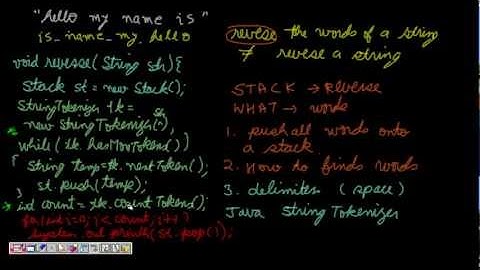 "hello my name is"
is_name_my_hello
void reverse(String str){
Stack st = new Stack();
StringTokenizer tk =
new StringTokenizer(str);
while (tk.hasMoreTokens())
{ String temp=tk.nextToken();
st.push(temp);
int count = tk.countTokens();
for(int i=0; i< count; i++)
System.out.println(st.pop());
revese the words of a string
≠ revese a string
STACK → REVERSE
WHAT → words
1. push all words onto
a stack
2. How to finds words
3. delimiter (space)
Java StringTokenizer